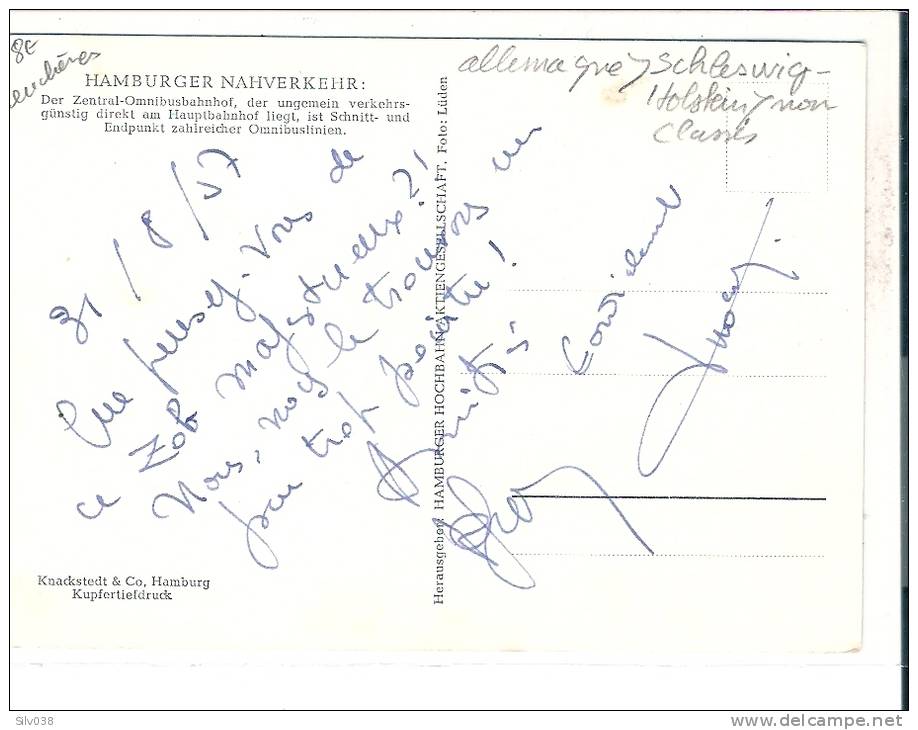 8€
enchères
allemagne / Schleswig-
Holstein / non
Classés
HAMBURGER NAHVERKEHR:
Der Zentral-Omnibusbahnhof, der ungemein verkehrs-
günstig direkt am Hauptbahnhof liegt, ist Schnitt- und
Endpunkt zahlreicher Omnibuslinien.
31/8/57
Que pensez-vous de
ce ZOB majestueux?!
Nous, nous le trouvons un
peu trop
Amitiés
Knackstedt & Co, Hamburg
Kupfertiefdruck
Herausgeber: HAMBURGER HOCHBAHN AKTIENGESELLSCHAFT. Foto: Lüden
Silv038
www.delcampe.net